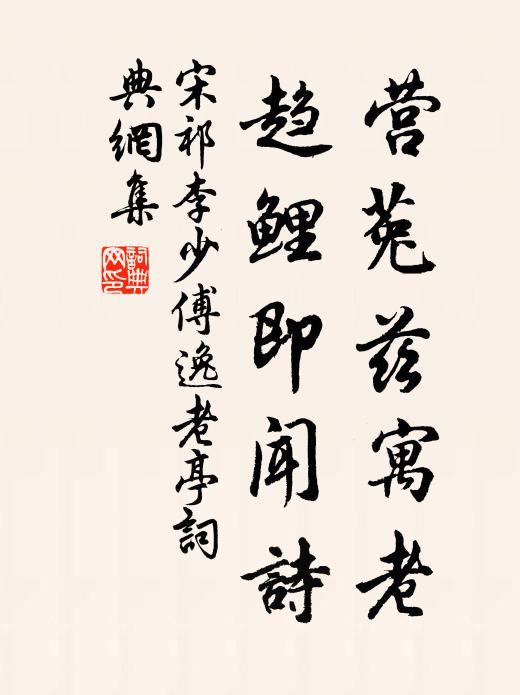 营菟兹寓老
趋鲤即闻詩
宋祁李少傅逸老亭詞
典網集
詞典
网印